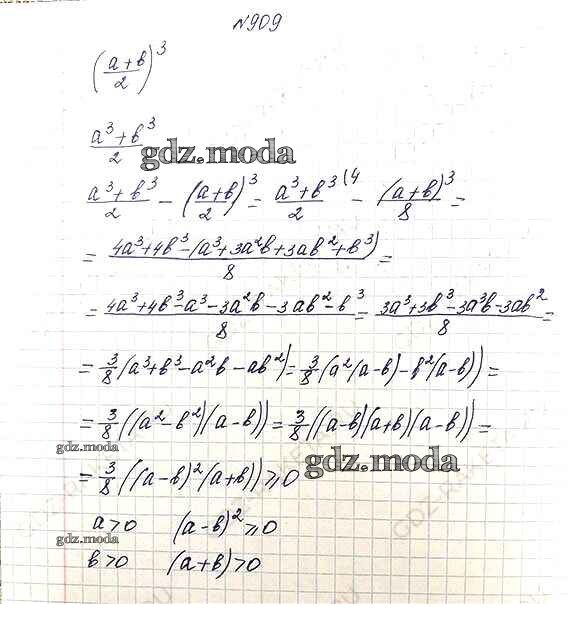 N909
(a+b/2)^3
a^3+b^3/2
gdz.moda
a^3+b^3/2 - (a+b/2)^3 = a^3+b^3/2 (4 - (a+b)^3/8 =
= 4a^3+4b^3-(a^3+3a^2b+3ab^2+b^3)/8 =
= 4a^3+4b^3-a^3-3a^2b-3ab^2-b^3/8 = 3a^3+3b^3-3a^3b-3ab^2/8 =
= 3/8(a^3+b^3-a^2b-ab^2)= 3/8(a^2(a-b)-b^2(a-b)) =
= 3/8((a^2-b^2)(a-b))= 3/8((a-b)(a+b)(a-b)) =
gdz.moda
= 3/8((a-b)^2(a+b))≥0
gdz.moda
a>0 (a-b)^2≥0
gdz.moda
b>0 (a+b)>0